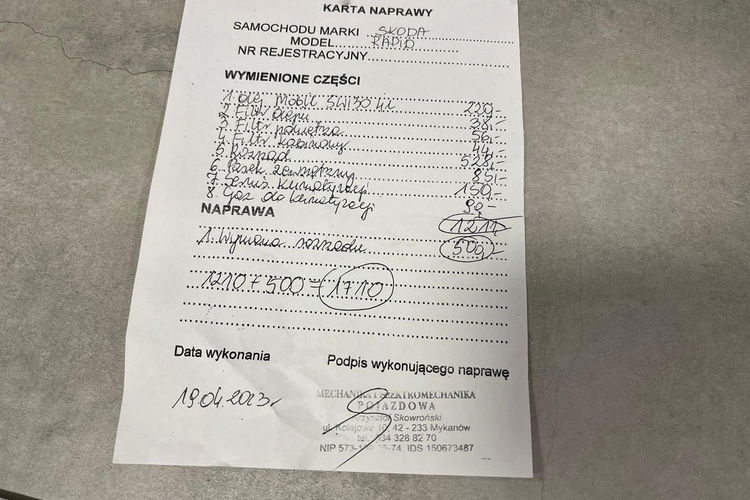 KARTA NAPRAWY
SAMOCHODU MARKI SKODA
MODEL RAPID
NR REJESTRACYJNY
WYMIENIONE CZĘŚCI
1. Olej Mobil 5W30 4L 220,-
2 Filtr oleju 38,-
3 Filtr powietrza 56,-
4. Filtr kabinowy 44,-
5. Rozrząd 528,-
6. Pasek zewnętrzny 85,-
7. Serwis klimatyzacji 150,-
8. Gaz do klimatyzacji 90,-
NAPRAWA 1211
1. Wymiana rozrządu 500,-
1210 + 500 = 1710
Data wykonania Podpis wykonującego naprawę
19.04.2023r
MECHANIKA I ELEKTROMECHANIKA
POJAZDOWA
Krzysztof Skowroński
ul. Kolejowa 10, 42 - 233 Mykanów
tel. 034 328 82 70
NIP 573- 35-74, IDS 150673487